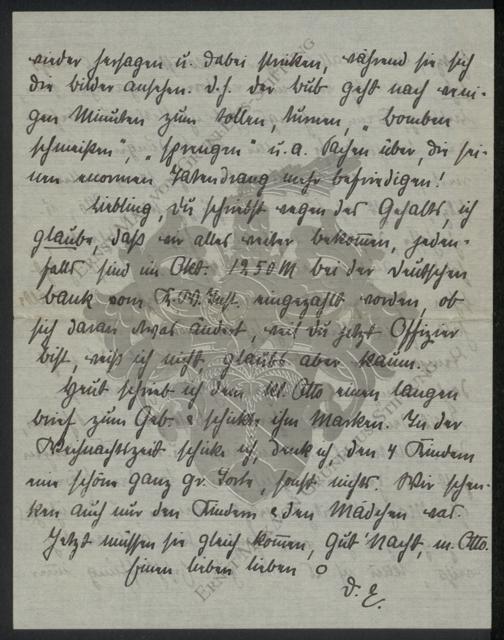 wieder hersagen u. dabei stricken, während sie sich
die bilder ansehen. d.h. der bub geht nach weni-
gen Minuten zum tollen, turnen, „bomben
schmeißen", „sprengen" u.a. Sachen über, die sei-
nen enormen Tatendrang mehr befriedigen!
Liebling, Du schreibst wegen des Gehalts, ich
glaube, daß wir alles weiter bekommen, jeden-
falls sind im Okt. 1250 M bei der deutschen
bank vom Inst. eingezahlt worden, ob
sich daran etwas ändert, weil du jetzt Offizier
bist, weiß ich nicht, glaubs aber kaum.
Heut schrieb ich dem Otto einen langen
brief zum Geb. & schickte ihm Marken. In der
Weihnachtszeit schicke ich, denk ich, den 4 Kindern
eine schöne ganz gr. Torte, sonst nichts. Wir schen-
ken auch nur den Kindern & den Mädchen was.
Jetzt müssen sie gleich kommen, Gut' Nacht, m. Otto.
Einen lieben lieben O
D. E.
ERNST MAX VON GRUNELIUS-STIFTUNG